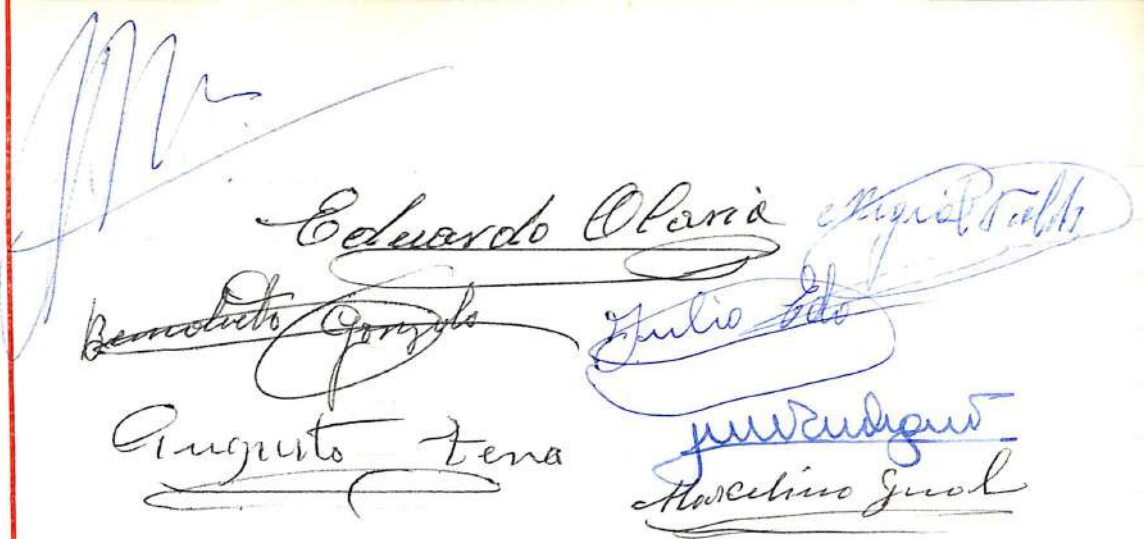 Eduardo Olaria
Miguel
Benedicto Gonzalo
Julio Edo
Augusto Tena
Marcelino Gual